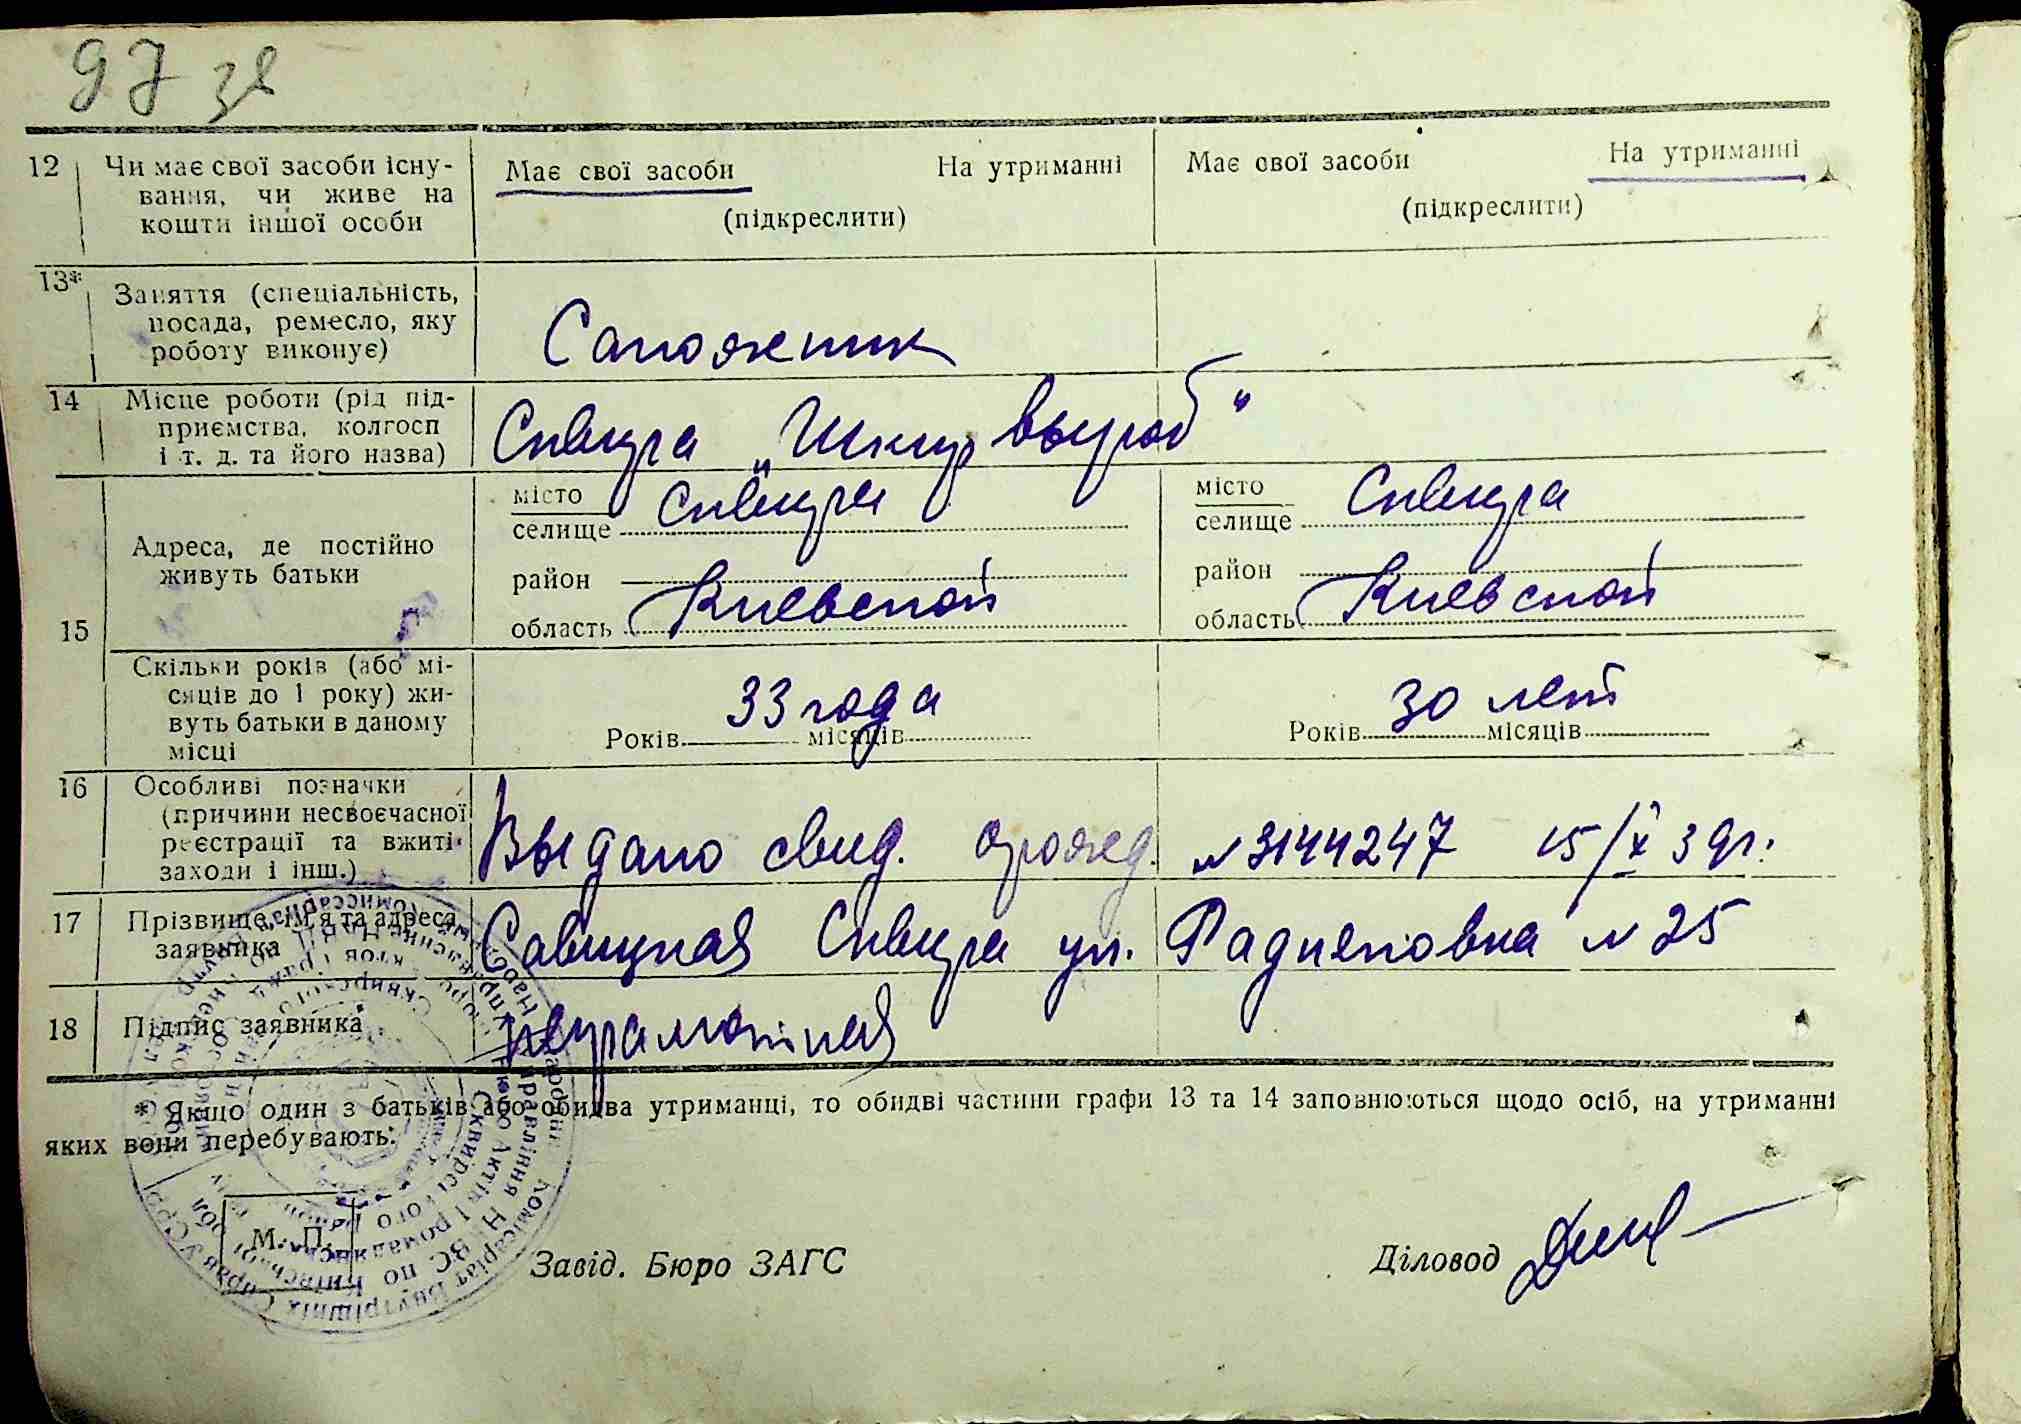 97 зв
12 Чи має свої засоби існу-
вання, чи живе на
кошти іншої особи
Має свої засоби На утриманні
(підкреслити)
Має свої засоби На утриманні
(підкреслити)
13* Заняття (спеціальність,
посада, ремесло, яку
роботу виконує)
Сапожник
14 Місце роботи (рід під-
приємства, колгосп
і т. д. та його назва)
Сквира „Шкур выроб"
15 Адреса, де постійно
живуть батьки
місто
селище Сквира
район
область Киевской
місто
селище Сквира
район
область Киевской
Скільки років (або мі-
сяців до 1 року) жи-
вуть батьки в даному
місці
33 года
Років місяців
30 лет
Років місяців
16 Особливі позначки
(причини несвоєчасної
реєстрації та вжиті
заходи і інш.)
Выдано свид. о рожд. №3144247 15/X 39г.
17 Прізвище, ім'я та адреса
заявника
Савицкая Сквира ул. №25
18 Підпис заявника
неграмотная
* Якщо один з батьків або обидва утриманці, то обидві частини графи 13 та 14 заповнюються щодо осіб, на утриманні
яких вони перебувають.
М. П.
Завід. Бюро ЗАГС
Діловод